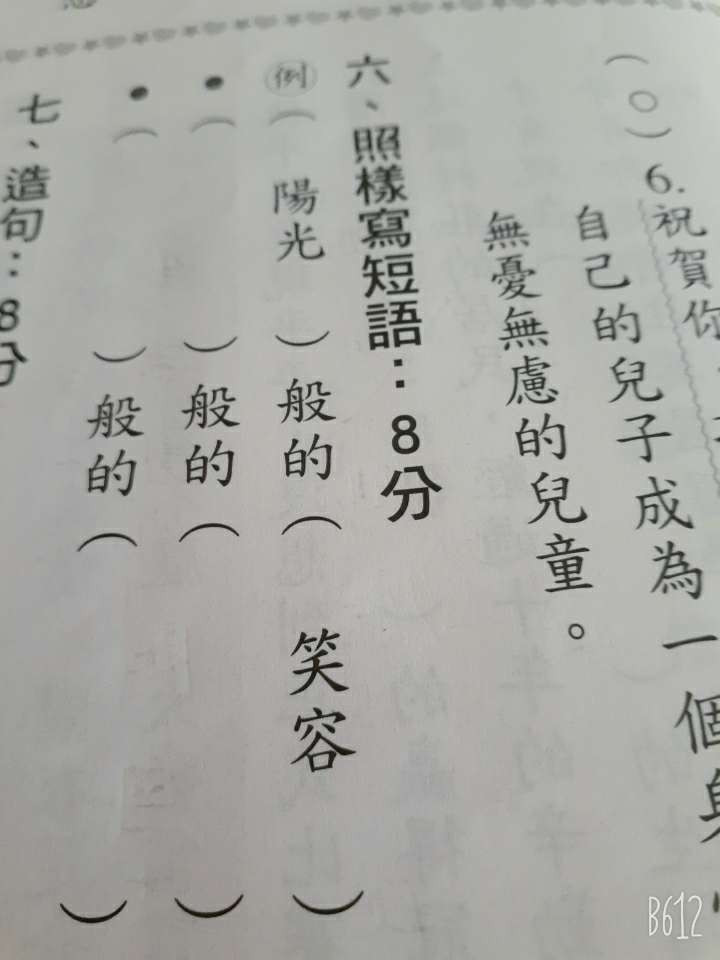 （○）6.祝賀你
自己的兒子成為一個
無憂無慮的兒童。
六、照樣寫短語：8分
例（陽光）般的（笑容）
•（）般的（）
•（）般的（）
七、造句：8分
B612